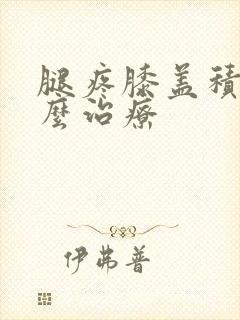 腿疼膝盖積
麼治療
伊弗普